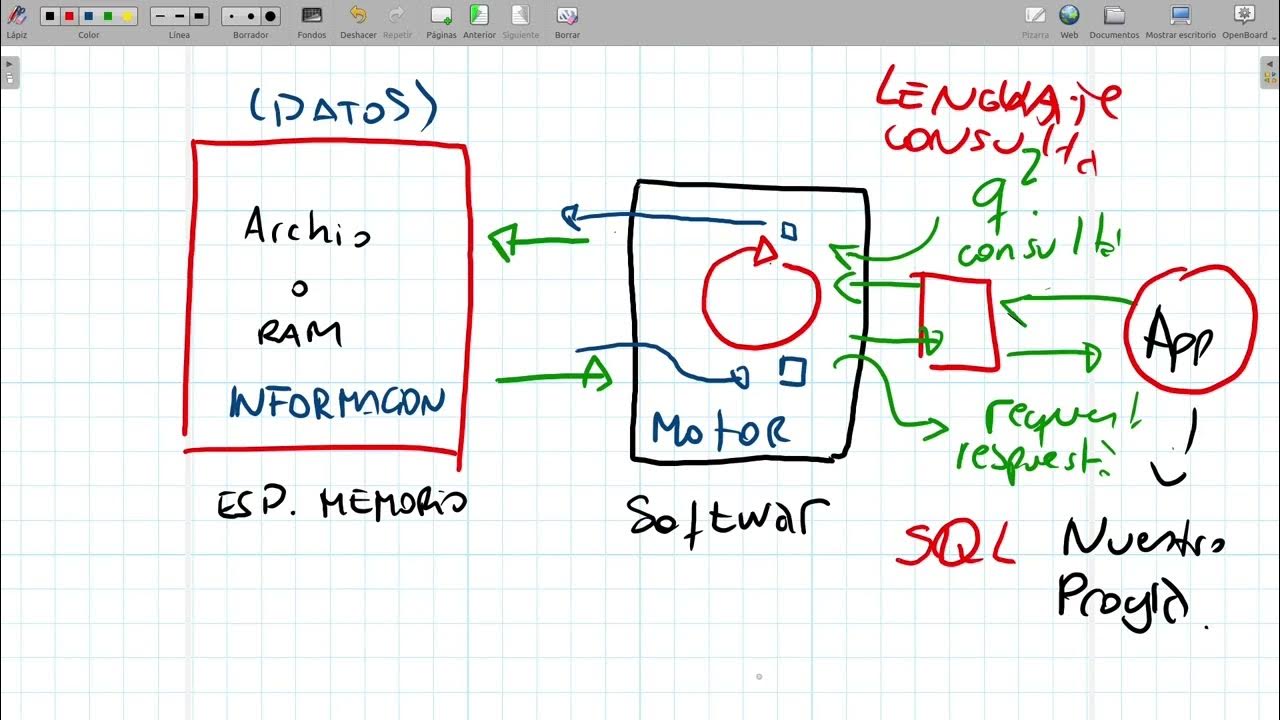 Lápiz
Color
Línea
Borrador
Fondos
Deshacer
Repetir
Páginas
Anterior
Siguiente
Borrar
Pizarra
Web
Documentos
Mostrar escritorio
OpenBoard
(DATOS)
Archio
o
RAM
INFORMACON
ESP. MEMORIO
MOTOR
Softwar
LENGUAje
consulta
q?
consulta
App
respuest
SQL
Nuestro